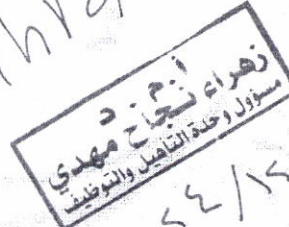 أ.م.د
زهراء نجاح مهدي
مسؤول وحدة التأهيل والتوظيف
٢٤/١٢